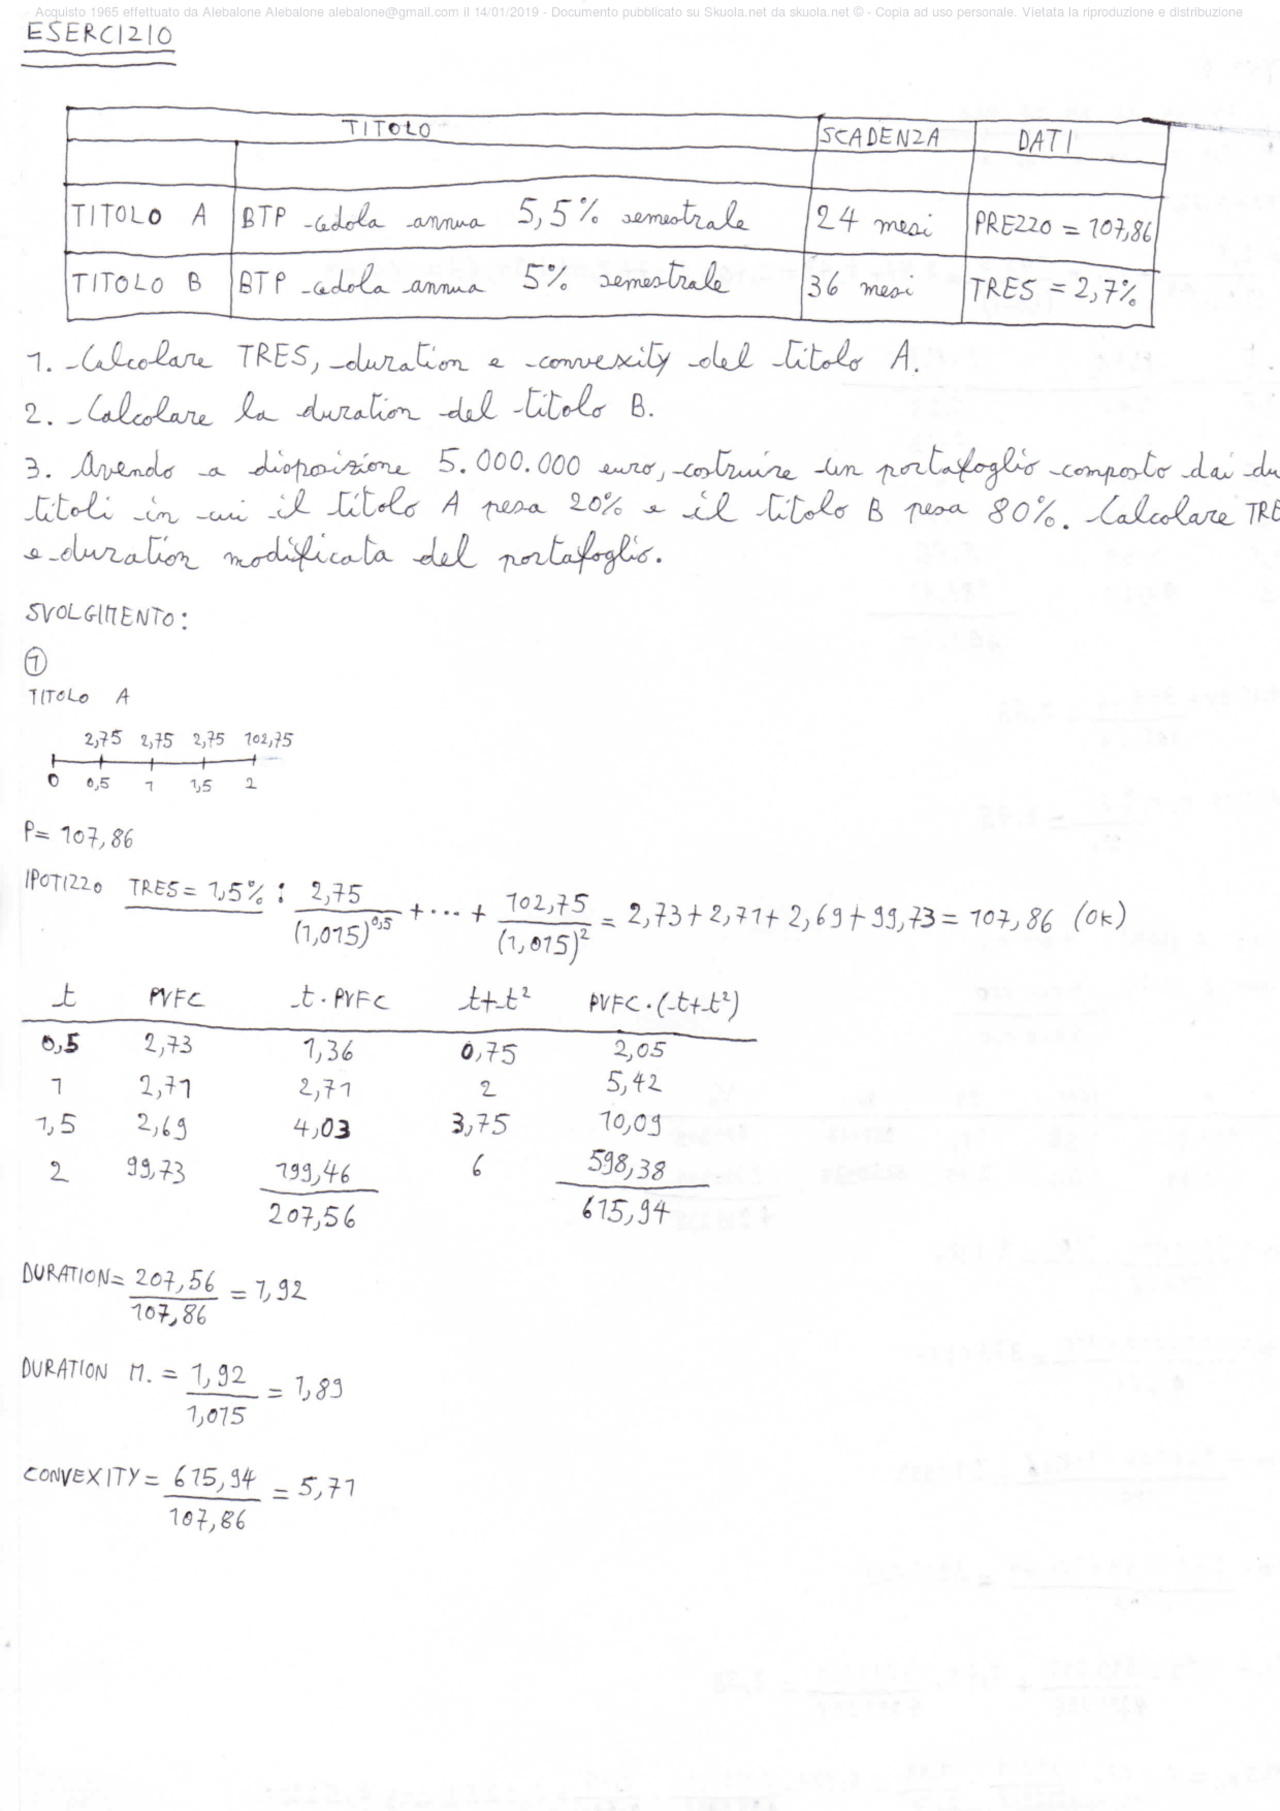 Acquisto 1965 effettuato da Alebalone Alebalone alebalone@gmail.com il 14/01/2019 - Documento pubblicato su Skuola.net da skuola.net © - Copia ad uso personale. Vietata la riproduzione e distribuzione
ESERCIZIO
TITOLO SCADENZA DATI
TITOLO A BTP cedola annua 5,5% semestrale 24 mesi PREZZO = 107,86
TITOLO B BTP cedola annua 5% semestrale 36 mesi TRES = 2,7%
1. Calcolare TRES, duration e convexity del titolo A.
2. Calcolare la duration del titolo B.
3. Avendo a disposizione 5.000.000 euro, costruire un portafoglio composto dai du
titoli in cui il titolo A pesa 20% e il titolo B pesa 80%. Calcolare TRE
e duration modificata del portafoglio.
SVOLGIMENTO:
1
TITOLO A
2,75 2,75 2,75 102,75
0 0,5 1 1,5 2
P = 107,86
IPOTIZZO TRES = 1,5% : 2,75/(1,015)^0,5 + ... + 102,75/(1,015)^2 = 2,73 + 2,71 + 2,69 + 99,73 = 107,86 (OK)
t PVFC t · PVFC t+t² PVFC · (t+t²)
0,5 2,73 1,36 0,75 2,05
1 2,71 2,71 2 5,42
1,5 2,69 4,03 3,75 10,09
2 99,73 199,46 6 598,38
207,56 615,94
DURATION = 207,56/107,86 = 1,92
DURATION M. = 1,92/1,015 = 1,89
CONVEXITY = 615,94/107,86 = 5,71